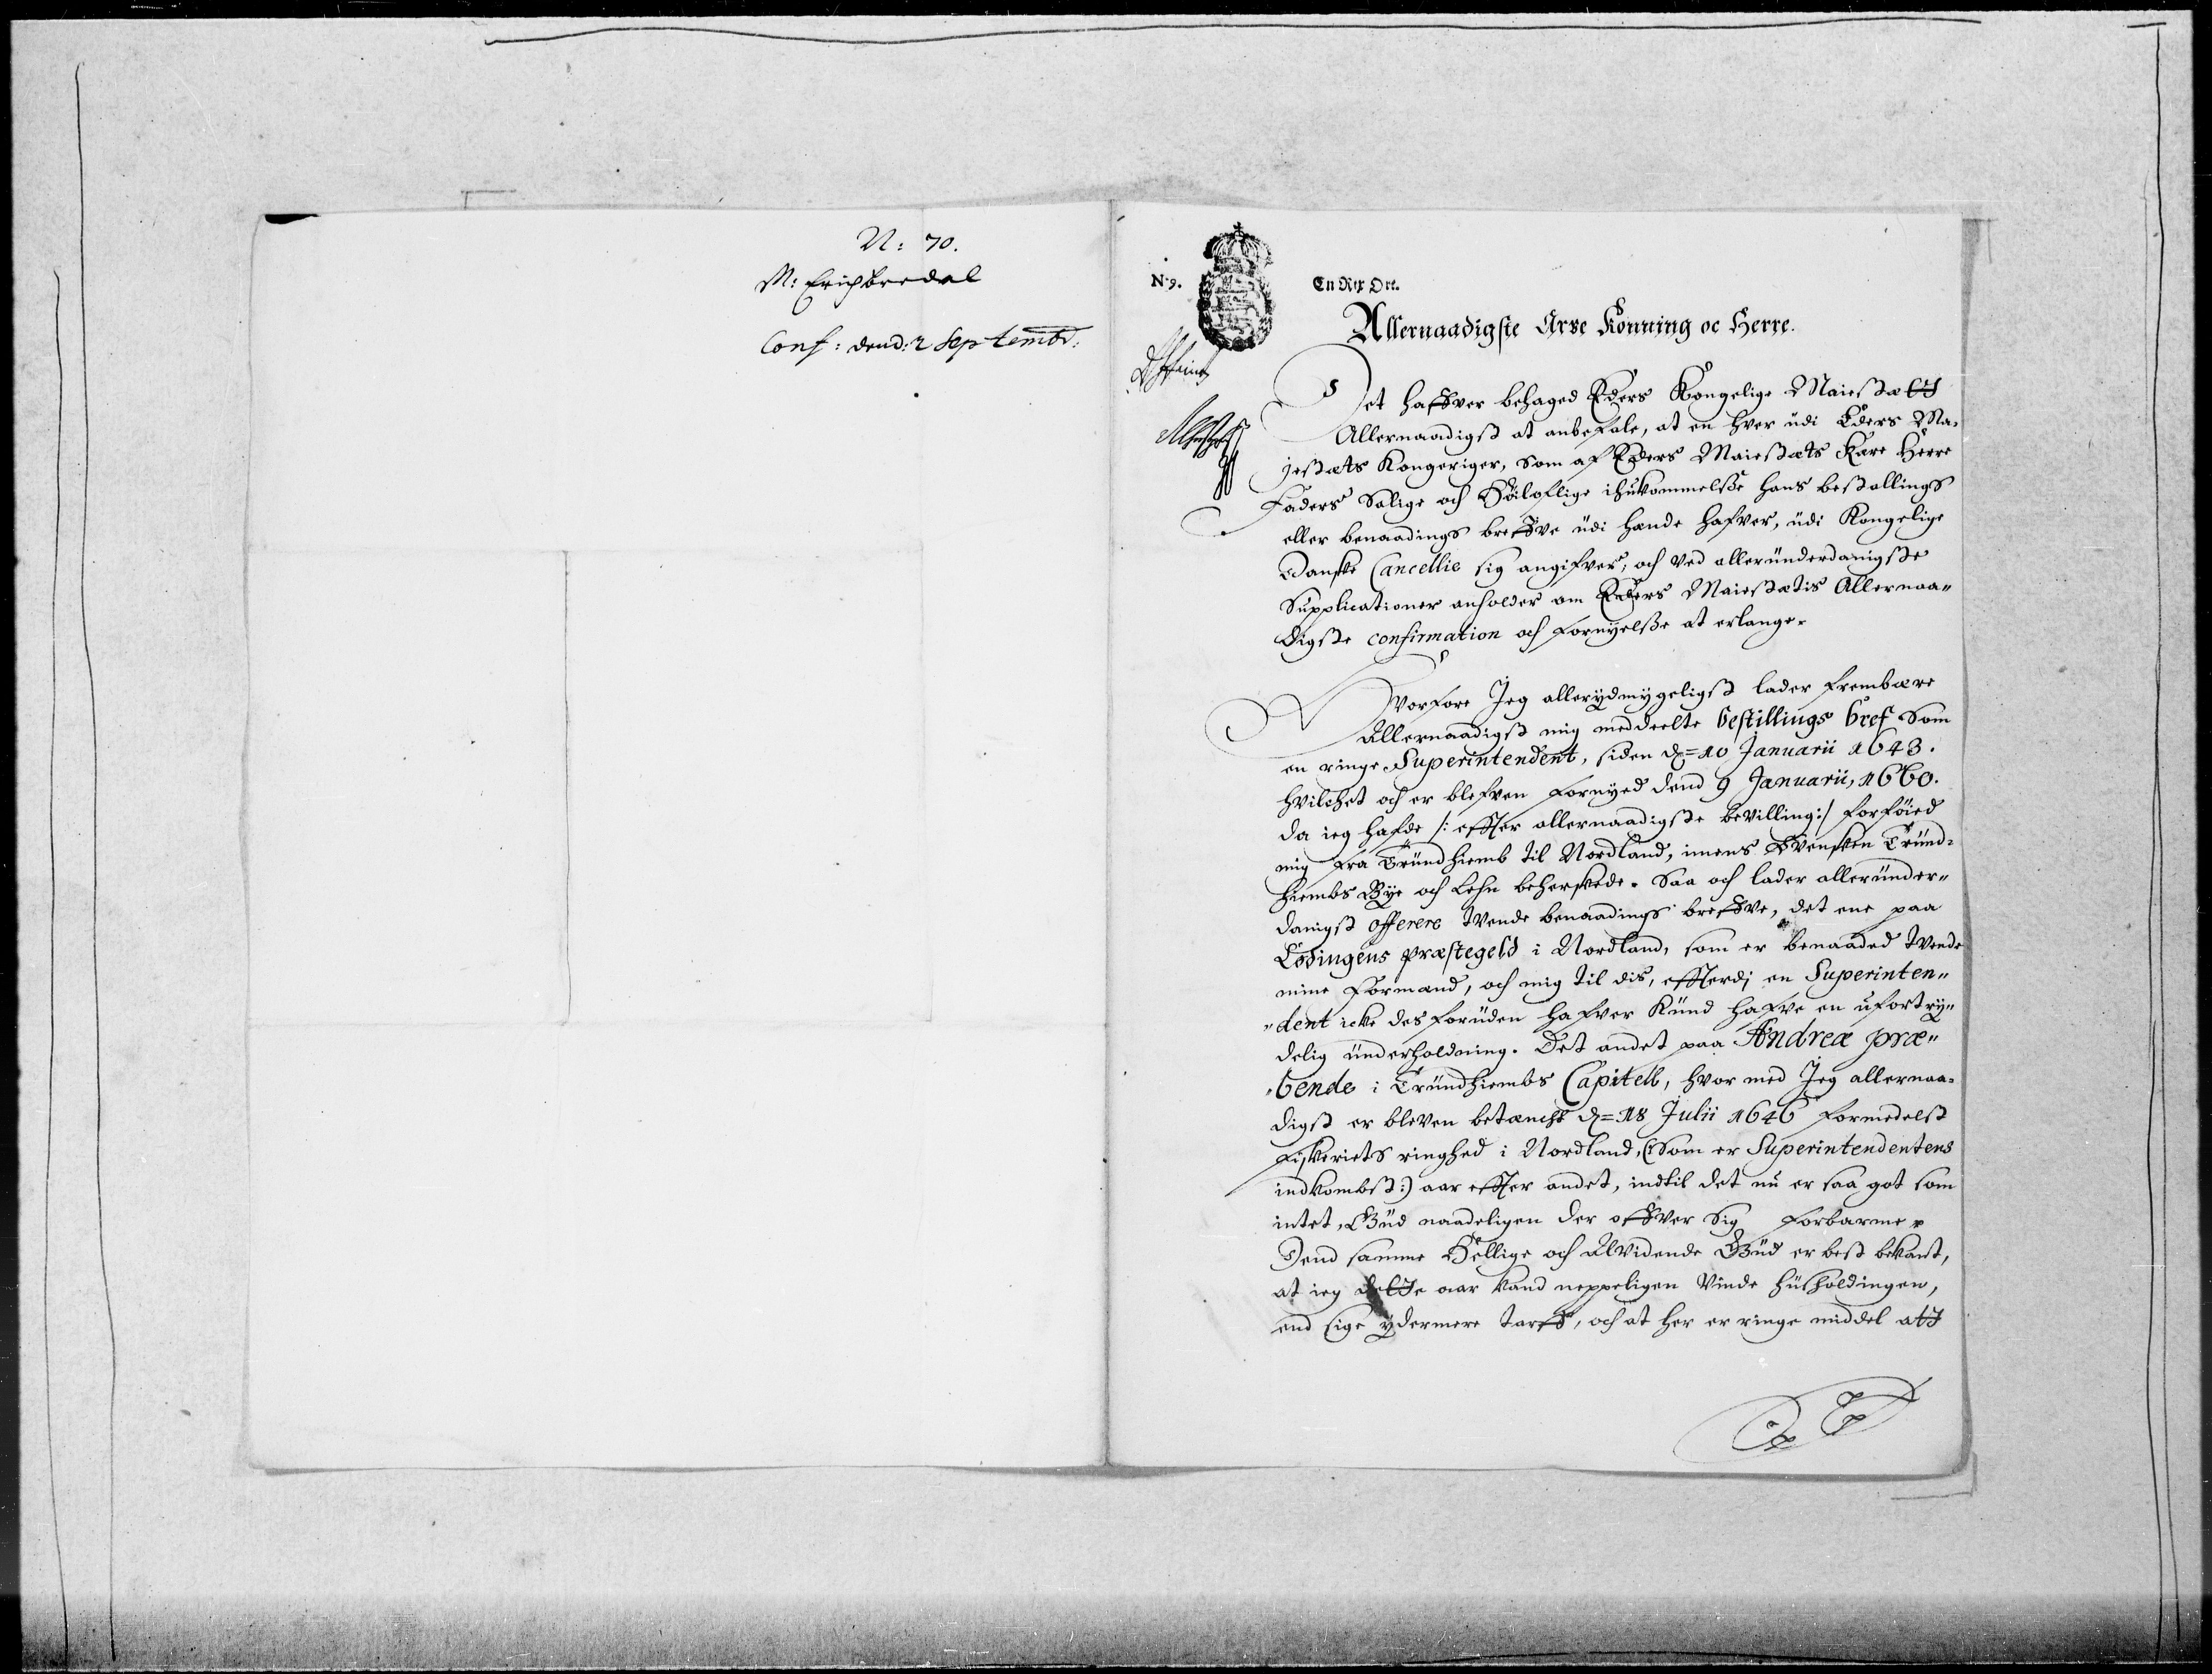 N: 70.
M: Erich bredal
Conf: dend: 2 Septembr:
N·9.
En Rix Ort.
Allernaadigste Arve Konning oc Herre.
Det haffver behaged Eders Kongelige Maiestætt
Allernaadigst at anbefale, at en hver udi Eders Ma-
jestæts Kongeriger, som af Eders Maiestæts Kære Herre
Faders Salige och Höiloflige ihukommelsße hans bestallings
eller benaadings breffve udi hænde hafver, udi Kongelige
Danske Cancellie sig angifver, och ved allerunderdanigste
Supplicationer anholder om Eders Maiestætis Allernaa-
digste confirmation och fornyelsße at erlange.
Hvorfore Jeg allerydmygeligst lader frembære
Allernaadigst mig meddeelte bestillings bref som
en ringe Superintendent, siden d= 10 Januarii 1643.
hvilchet och er blefven fornyed dend 9 Januarii, 1660.
da ieg hafde /: effter allernaadigste bevilling:/ forföied
mig fra Trundhiemb til Nordland, imens Svensken Trund-
hiembs Bye och Lehn beherskede. Saa och lader allerunder-
danigst offerere tvende benaadings breffve, det ene paa
Lödingens præstegeld i Nordland, som er benaaded tvende
mine Formænd, och mig til dis, effterdj en Superinten-
dent icke des foruden hafver kund hafve en ufortry-
delig underholdning. Det andet paa Andreæ præ-
bende i Trundhiembs Capitell, hvor med Jeg allernaa-
digst er bleven betæncht d= 18 Julii 1646 formedelst
Fiskeriets ringhed i Nordland, (: som er Superintendentens
indkombst:) aar effter andet, indtil det nu er saa got som
intet, Gud naadeligen der offver sig forbarme.
Dend samme Hellige och Alvidende Gud er best bekant,
at ieg dette aar kand neppeligen vinde husholdingen,
end sige ydermere tarff, och at her er ringe middel att